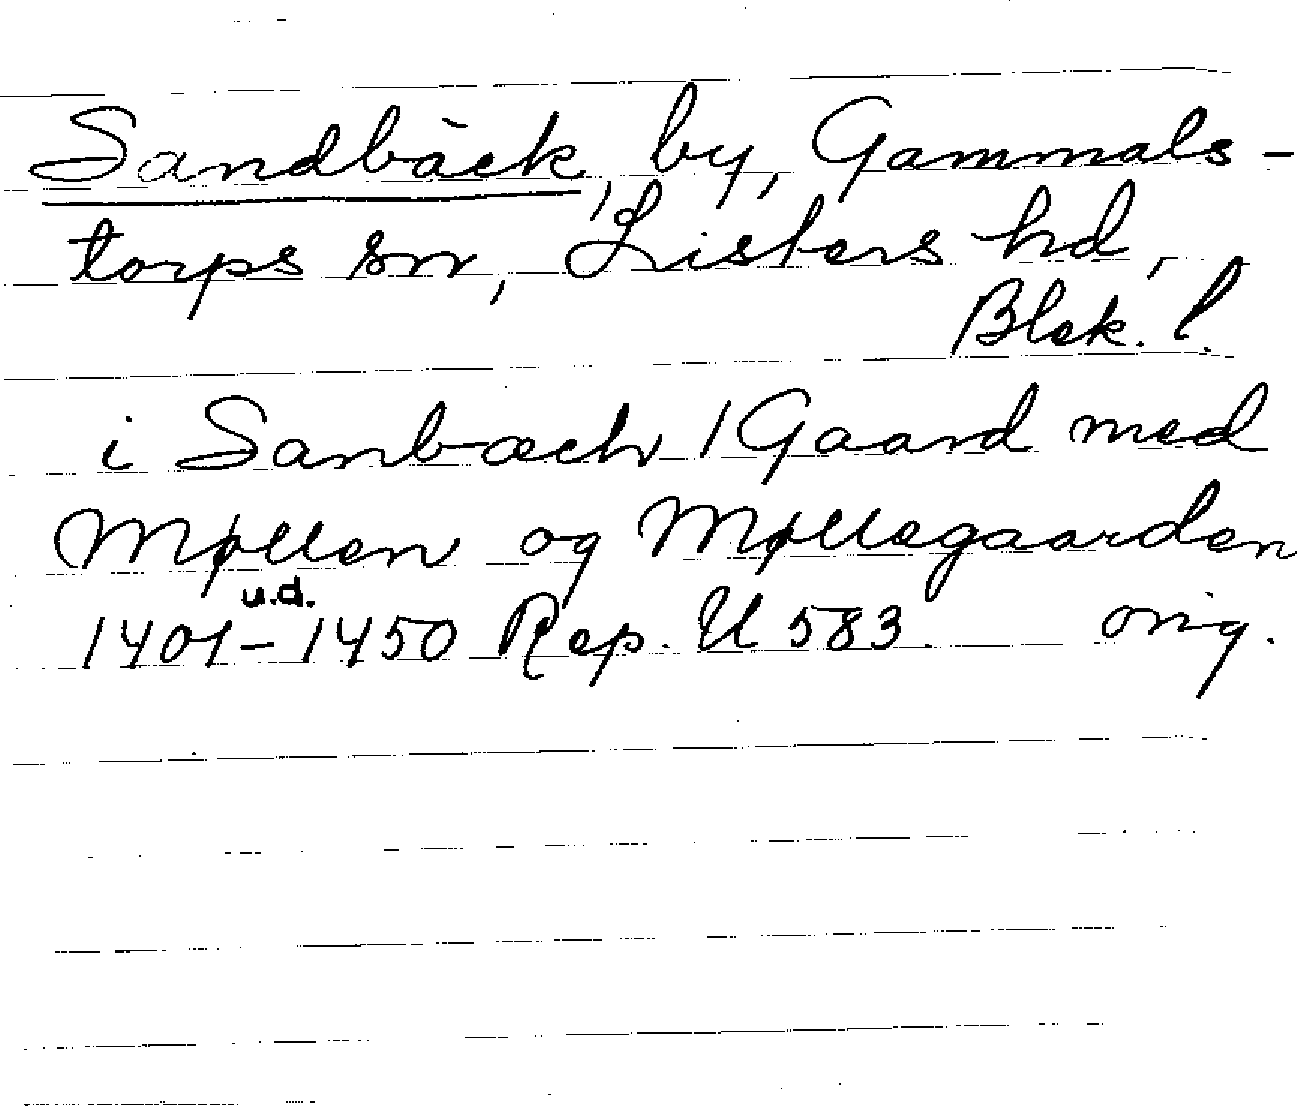 Sandbäck, by, Gammals-
torps sn, Listers hd,
Blek. l.
i Sanbæck 1 Gaard med
Møllen og Møllegaarden
u.d.
1401-1450 Rep. U 583. orig.